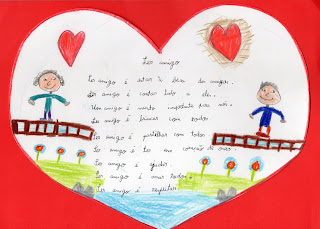 Ser amigo
Ser amigo é estar à beira do amigo.
Ser amigo é contar tudo a ele.
Um amigo é muito importante para nós.
Ser amigo é brincar com todos.
Ser amigo é partilhar com todos.
Ser amigo é ter um coração de ouro.
Ser amigo é ajudar.
Ser amigo é amar todos.
Ser amigo é respeitar.